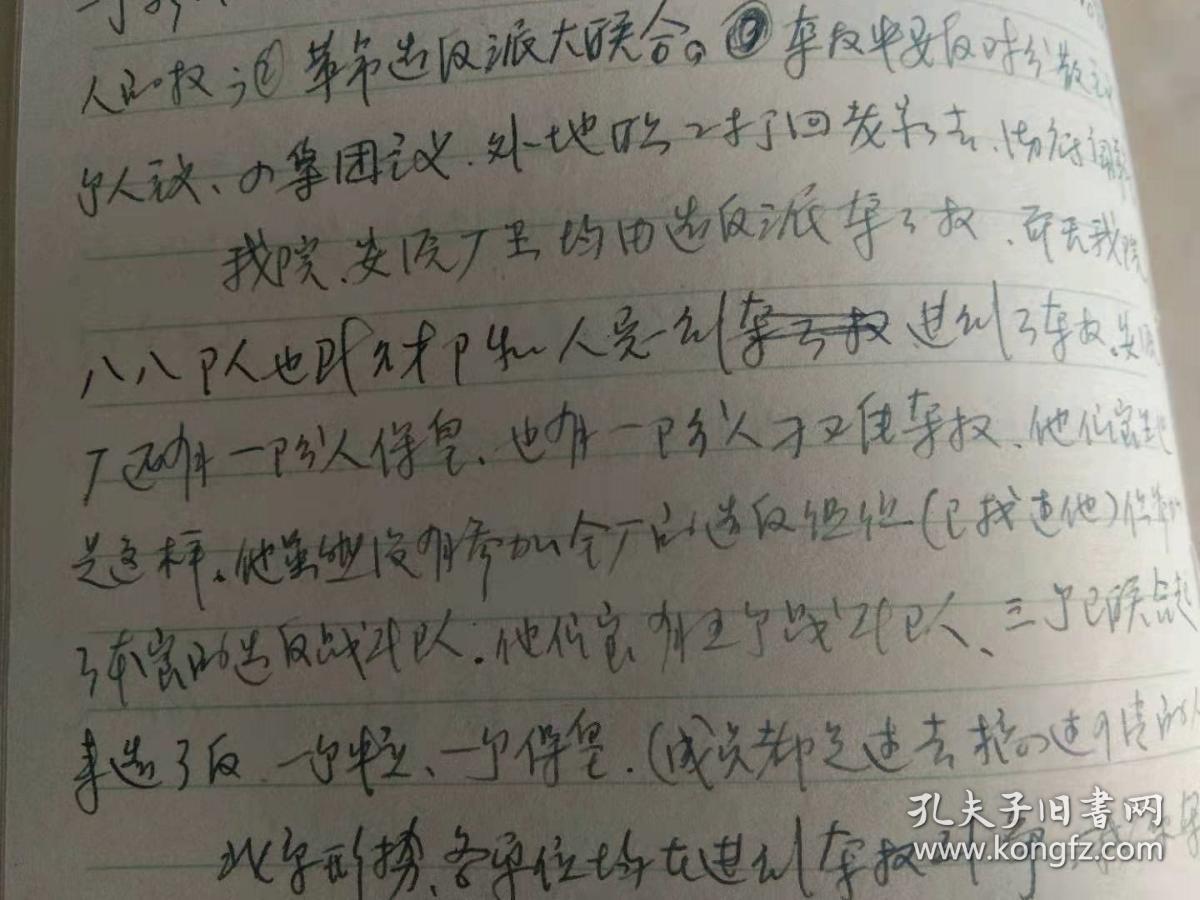 人的权；② 革命造反派大联合。③ 夺权中要反对分散主义
个人主义、小集团主义.外地的工打回老家去、
我院、安院厂里均由造反派夺了权.昨天我院
八八 人也 和人员一剑夺了权进行了夺权。安
厂还有一部分人保皇、也有一部分人 夺权.他们室也
是这样。他虽然没有参加全厂的造反组织(已找过他)但参加
了本室的造反战斗队.他们室有五个战斗队、三个已联合起
来造了反 一个中立、一个保皇.(成员都是过去搞过 的
北京形势、各单位均在进行夺权斗争
孔夫子旧书网
www.kongfz.com